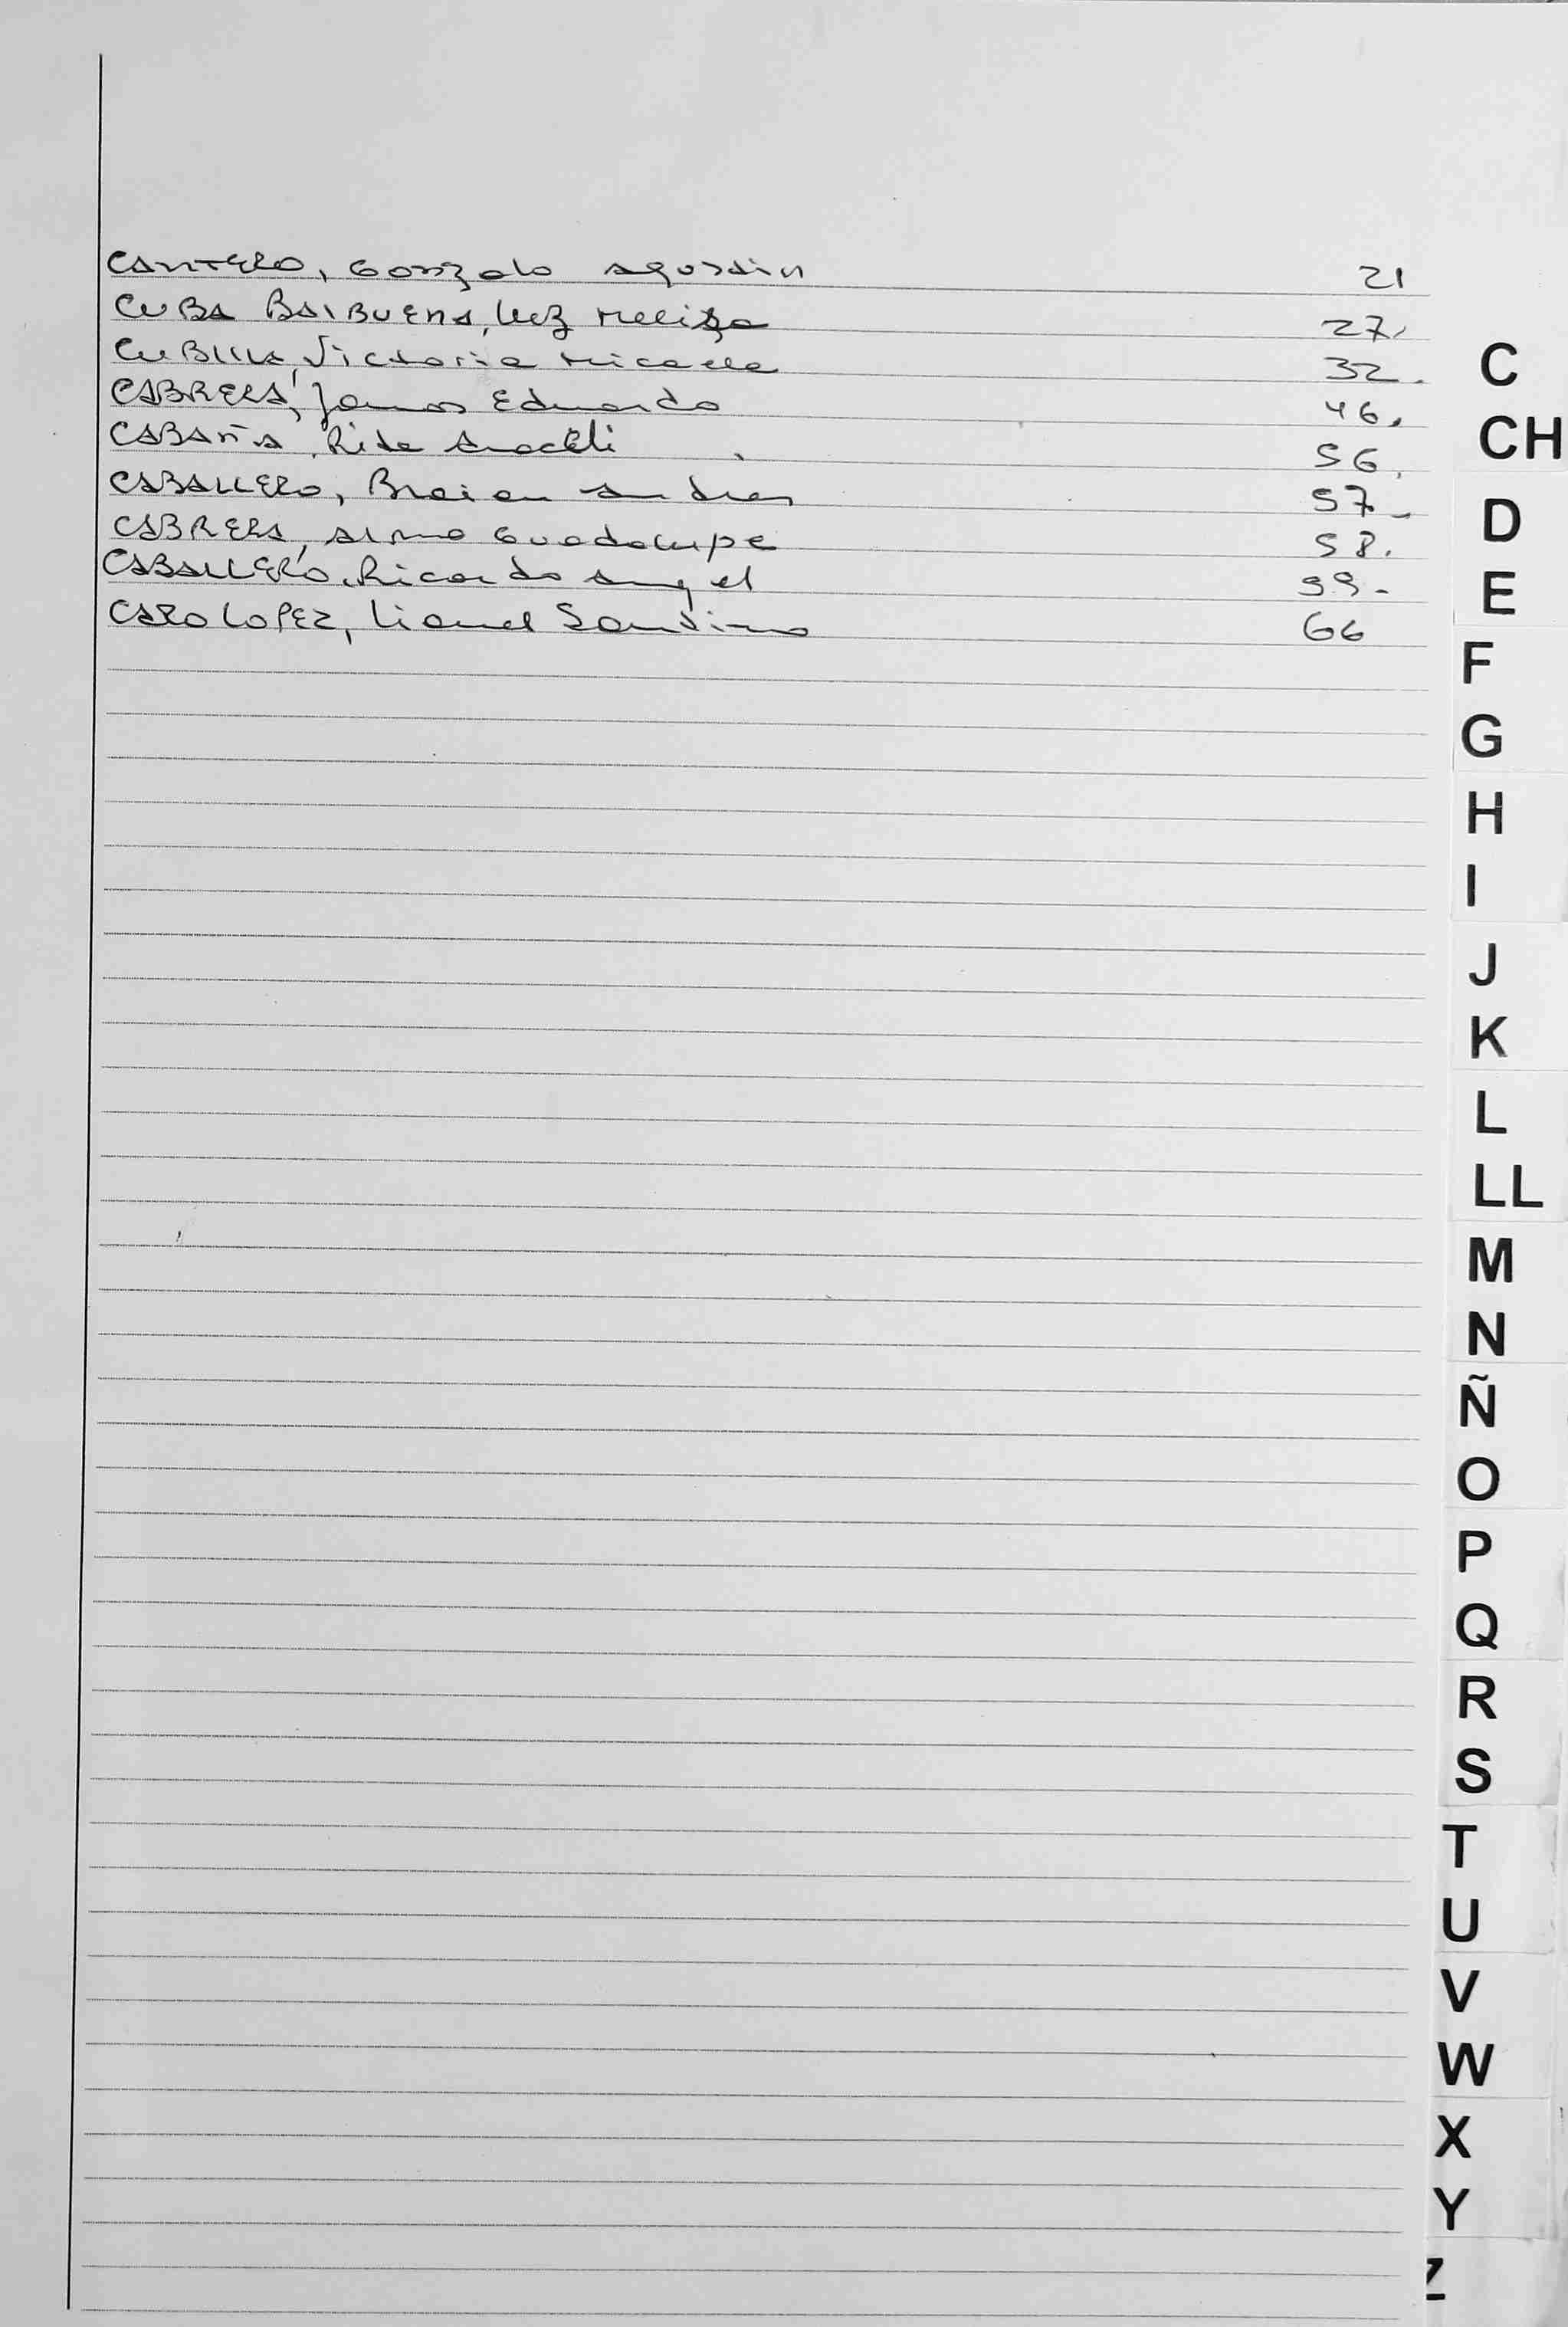 CANTERO, Gonzalo Agustin 21
CUBA BALBUENA, Luz Meliza 27.
CUBILLA, Victoria Micaela 32.
CABRERA, Jonas Eduardo 46.
CABAÑA, Rita Araceli 56.
CABALLERO, Braian Andres 57-
CABRERA, Alma Guadalupe 58.
CABALLERO, Ricardo Angel 99-
CARO LOPEZ, Lionel Santino 66
C
CH
D
E
F
G
H
I
J
K
L
LL
M
N
Ñ
O
P
Q
R
S
T
U
V
W
X
Y
Z